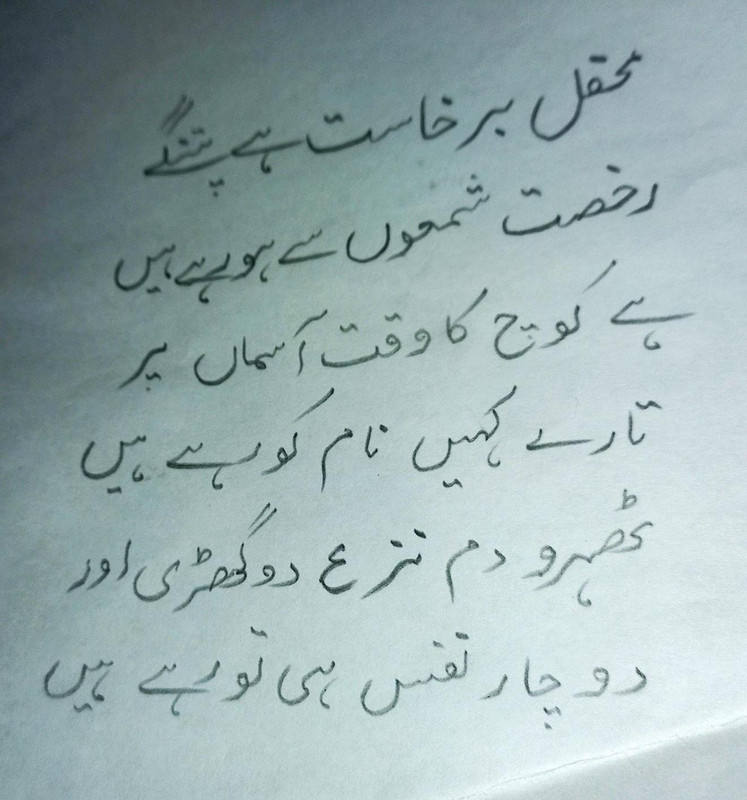 محفل برخاست ہے پتنگے
رخصت شمعوں سے ہو رہے ہیں
ہے کوچ کا وقت آسماں پر
تارے کہیں نام کو رہے ہیں
ٹھہرو دم نزع دو گھڑی اور
دو چار نفس ہی تو رہے ہیں